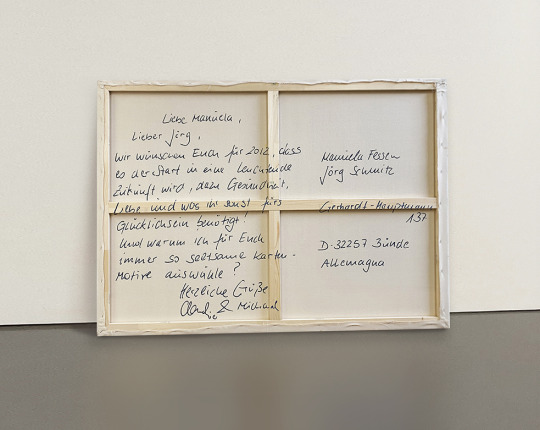 Liebe Manuela,
Lieber Jörg,
wir wünschen Euch für 2012, dass
es der Start in eine leuchtende
Zukunft wird, dazu Gesundheit,
Liebe und was ihr sonst fürs
Glücklichsein benötigt!
Und warum ich für Euch
immer so seltsame Karten-
Motive auswähle?
Herzliche Grüße
& Michael
Manuela Fessen
Jörg Schmitz
Gerhardt-Hauptmann
137
D-32257 Bünde
Allemagna